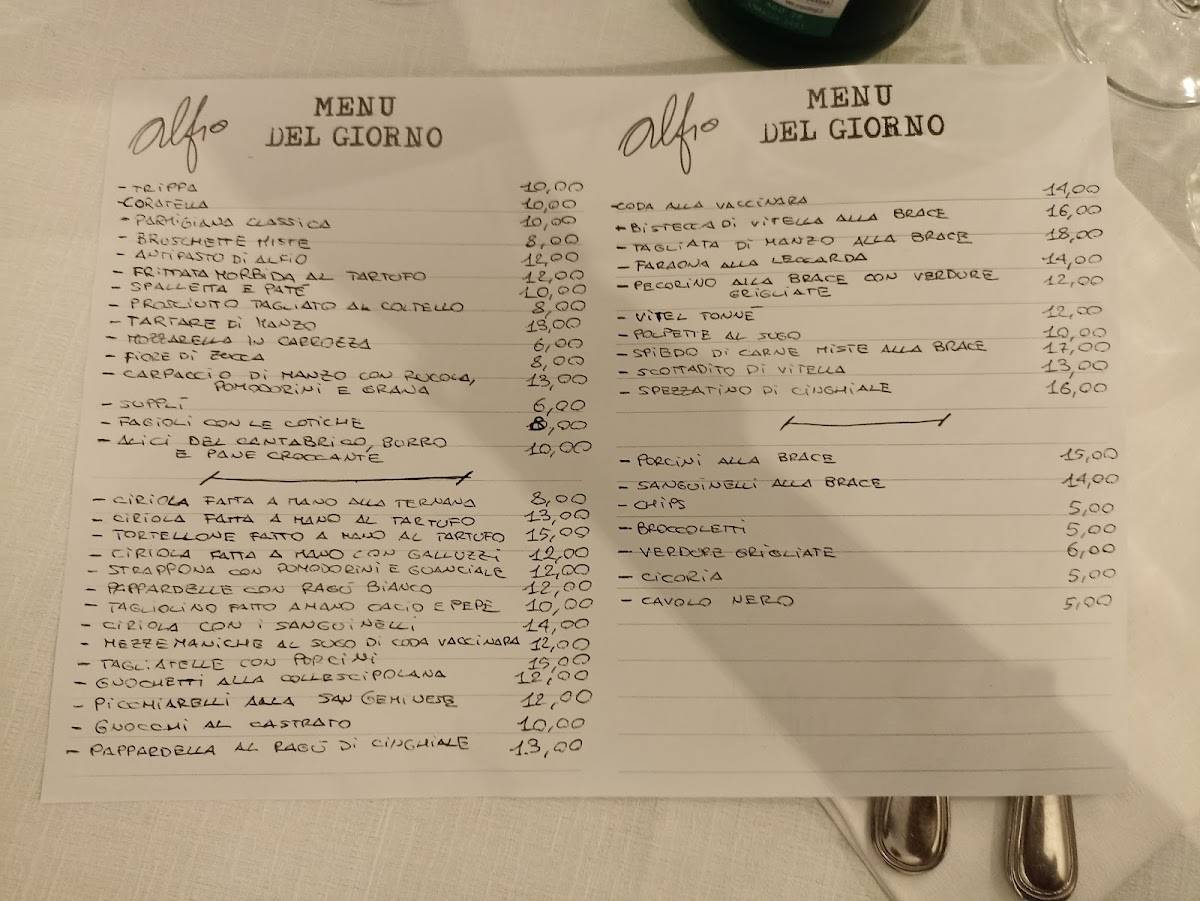 alfio
MENU
DEL GIORNO
- TRIPPA 10,00
-CORATELLA 10,00
- PARMIGIANA CLASSICA 10,00
- BRUSCHETTE MISTE 8,00
- ANTIPASTO DI ALFIO 12,00
- FRITTATA MORBIDA AL TARTUFO 12,00
- SPALLETTA E PATÉ 10,00
- PROSCIUTTO TAGLIATO AL COLTELLO 8,00
- TARTARE DI MANZO 13,00
- MOZZARELLA IN CARROZZA 6,00
- FIORE DI ZUCCA 8,00
- CARPACCIO DI MANZO CON RUCOLA, 13,00
POMODORINI E GRANA
- SUPPLÌ 6,00
- FAGIOLI CON LE COTICHE 8,00
- ALICI DEL CANTABRICO, BURRO 10,00
E PANE CROCCANTE
- CIRIOLA FATTA A MANO ALLA TERNANA 8,00
- CIRIOLA FATTA A MANO AL TARTUFO 13,00
- TORTELLONE FATTO A MANO AL TARTUFO 15,00
- CIRIOLA FATTA A MANO CON GALLUZZI 12,00
- STRAPPONA CON POMODORINI E GUANCIALE 12,00
- PAPPARDELLE CON RAGÙ BIANCO 12,00
- TAGLIOLINO FATTO A MANO CACIO E PEPE 10,00
- CIRIOLA CON I SANGUINELLI 14,00
- MEZZE MANICHE AL SUGO DI CODA VACCINARA 12,00
- TAGLIATELLE CON PORCINI 15,00
- GNOCHETTI ALLA COLLESCIPOLANA 12,00
- PICCHIARELLI ALLA SAN GEMINESE 12,00
- GNOCCHI AL CASTRATO 10,00
- PAPPARDELLA AL RAGÙ DI CINGHIALE 13,00
alfio
MENU
DEL GIORNO
-CODA ALLA VACCINARA 14,00
- BISTECCA DI VITELLA ALLA BRACE 16,00
- TAGLIATA DI MANZO ALLA BRACE 18,00
- FARAONA ALLA LECCARDA 14,00
- PECORINO ALLA BRACE CON VERDURE 12,00
GRIGLIATE
- VITEL TONNÉ 12,00
- POLPETTE AL SUGO 10,00
- SPIEDO DI CARNE MISTE ALLA BRACE 17,00
- SCOTTADITO DI VITELLA 13,00
- SPEZZATINO DI CINGHIALE 16,00
- PORCINI ALLA BRACE 15,00
- SANGUINELLI ALLA BRACE 14,00
- CHIPS 5,00
- BROCCOLETTI 5,00
- VERDURE GRIGLIATE 6,00
- CICORIA 5,00
- CAVOLO NERO 5,00